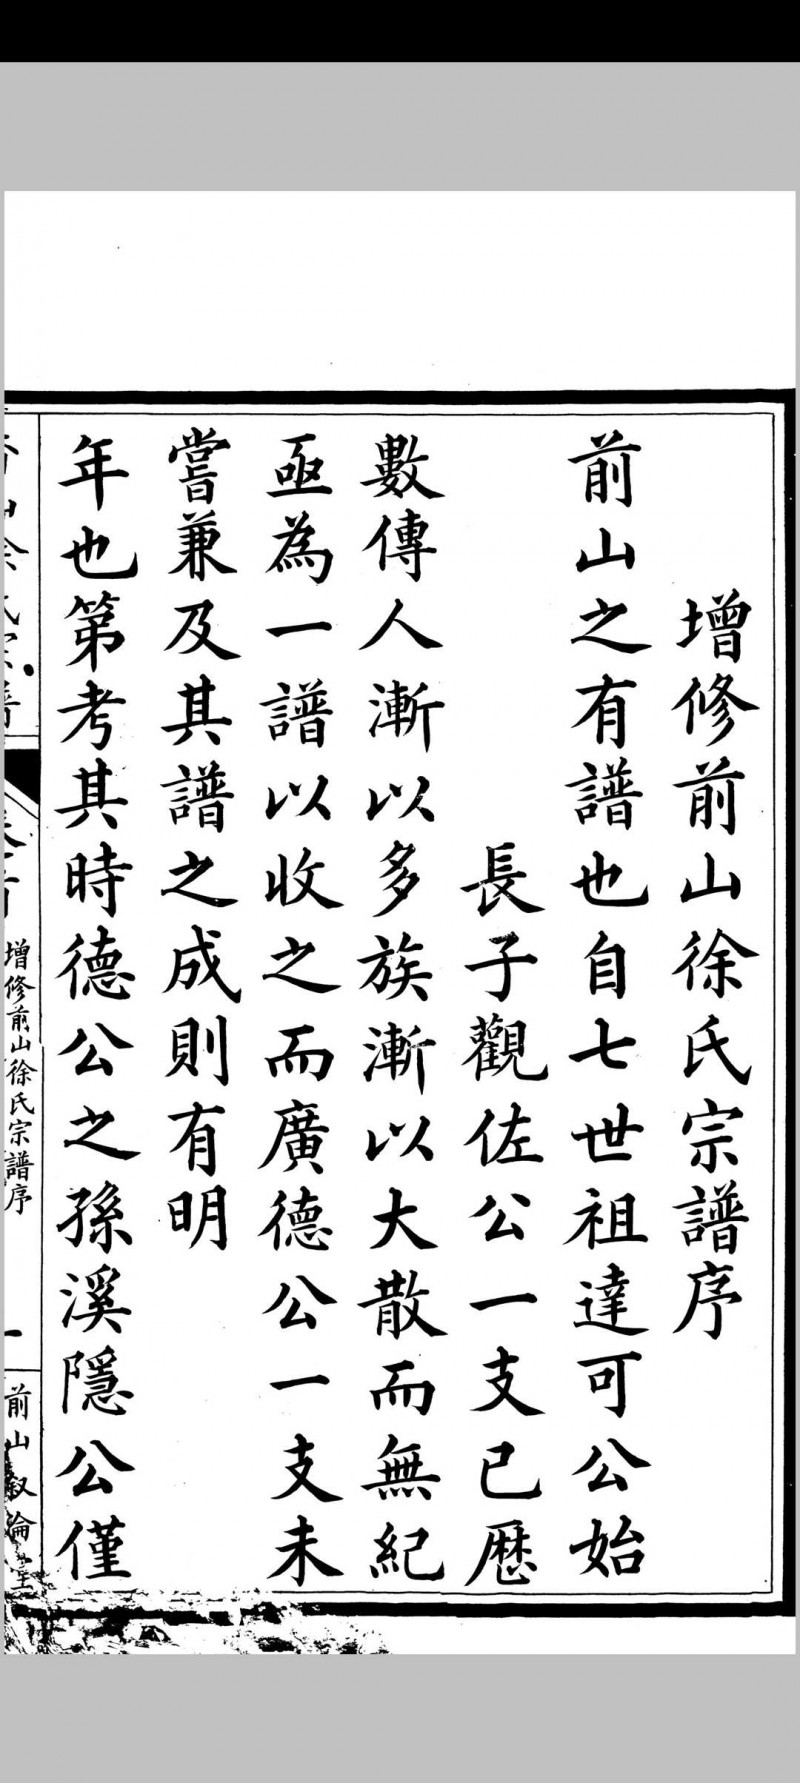 增修前山徐氏宗譜序
前山之有譜也自七世祖達可公始
長子觀佐公一支已歷
數傳人漸以多族漸以大散而無紀
亟為一譜以收之而廣德公一支未
嘗兼及其譜之成則有明
年也第考其時德公之孫溪隱公僅
增修前山徐氏宗譜序
一
前山